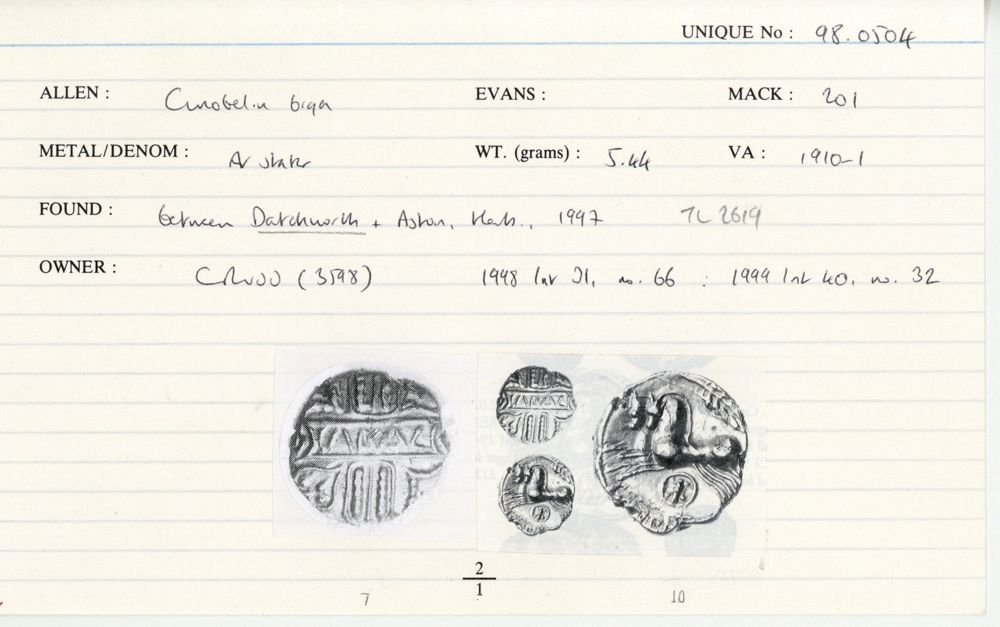 UNIQUE No : 98.0504
ALLEN : Cunobelin biga EVANS : MACK : 201
METAL/DENOM : AV stater WT. (grams) : 5.44 VA : 1910-1
FOUND : between Datchworth + Aston, Herts., 1997 TL 2619
OWNER : (3598) 1998 31, no. 66 : 1999 40, no. 32
2
1
7 10